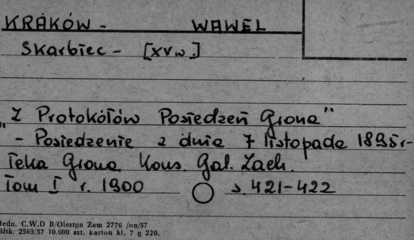 KRAKÓW - WAWEL
Skarbiec - [XV w.]
„Z Protokółów Posiedzeń Grona”
- Posiedzenie z dnia 7 listopada 1895 r.
Teka Grona Kons. Gal. Zach.
Tom I r. 1900 s. 421-422
Jedn. C.W.D B/Olsztyn Zam 2776 /on/57
Bltk. 2563/57 10.000 szt. karton kl. 7 g 220.